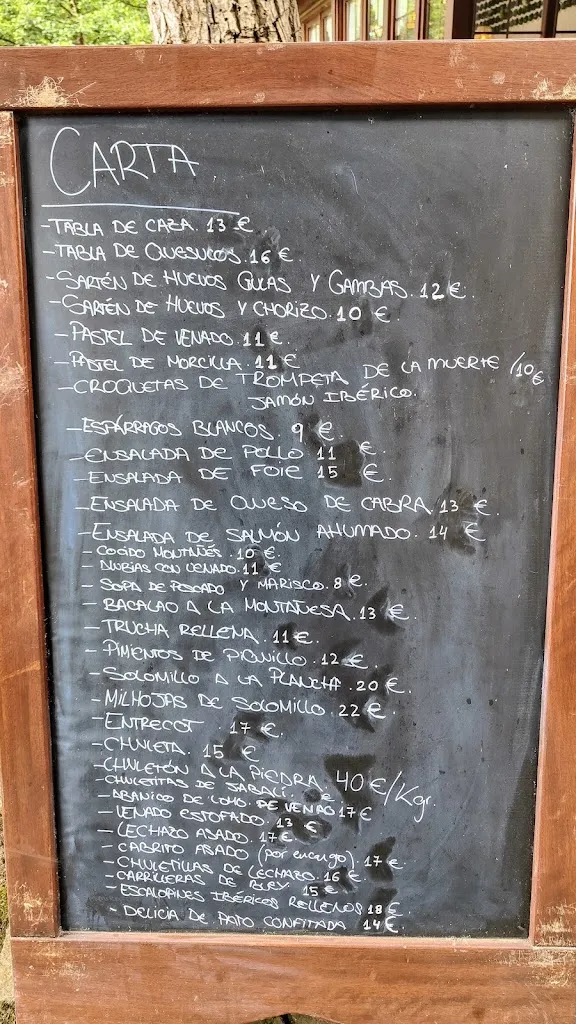 CARTA
-TABLA DE CAZA. 13 €
-TABLA DE QUESUCOS. 16 €
-SARTÉN DE HUEVOS GULAS Y GAMBAS. 12 €.
-SARTÉN DE HUEVOS Y CHORIZO. 10 €.
-PASTEL DE VENADO. 11 €.
-PASTEL DE MORCILLA. 11 €
-CROQUETAS DE TROMPETA DE LA MUERTE /10 €
JAMÓN IBÉRICO.
-ESPÁRRAGOS BLANCOS. 9 €.
-ENSALADA DE POLLO 11 €.
-ENSALADA DE FOIE 15 €.
-ENSALADA DE QUESO DE CABRA. 13 €.
-ENSALADA DE SALMÓN AHUMADO. 14 €
-COCIDO MONTAÑÉS. 10 €.
-ALUBIAS CON VENADO. 11 €
-SOPA DE PESCADO Y MARISCO. 8 €.
-BACALAO A LA MONTAÑESA. 13 €.
-TRUCHA RELLENA. 11 €.
-PIMIENTOS DE PIQUILLO. 12 €.
-SOLOMILLO A LA PLANCHA. 20 €.
-MILHOJAS DE SOLOMILLO. 22 €.
-ENTRECOT 17 €.
-CHULETA. 15 €
-CHULETÓN A LA PIEDRA. 40 €/Kgr.
-CHULETITAS DE JABALÍ. €
-ABANICO DE LOMO DE VENADO 17 €
-VENADO ESTOFADO. 13 €
-LECHAZO ASADO. 17 €.
-CABRITO ASADO (por encargo). 17 €.
-CHULETILLAS DE LECHAZO. 16 €.
-CARRILLERAS DE BUEY. 15 €.
-ESCALOPINES IBÉRICOS RELLENOS 18 €.
-DELICIA DE PATO CONFITADA 14 €.